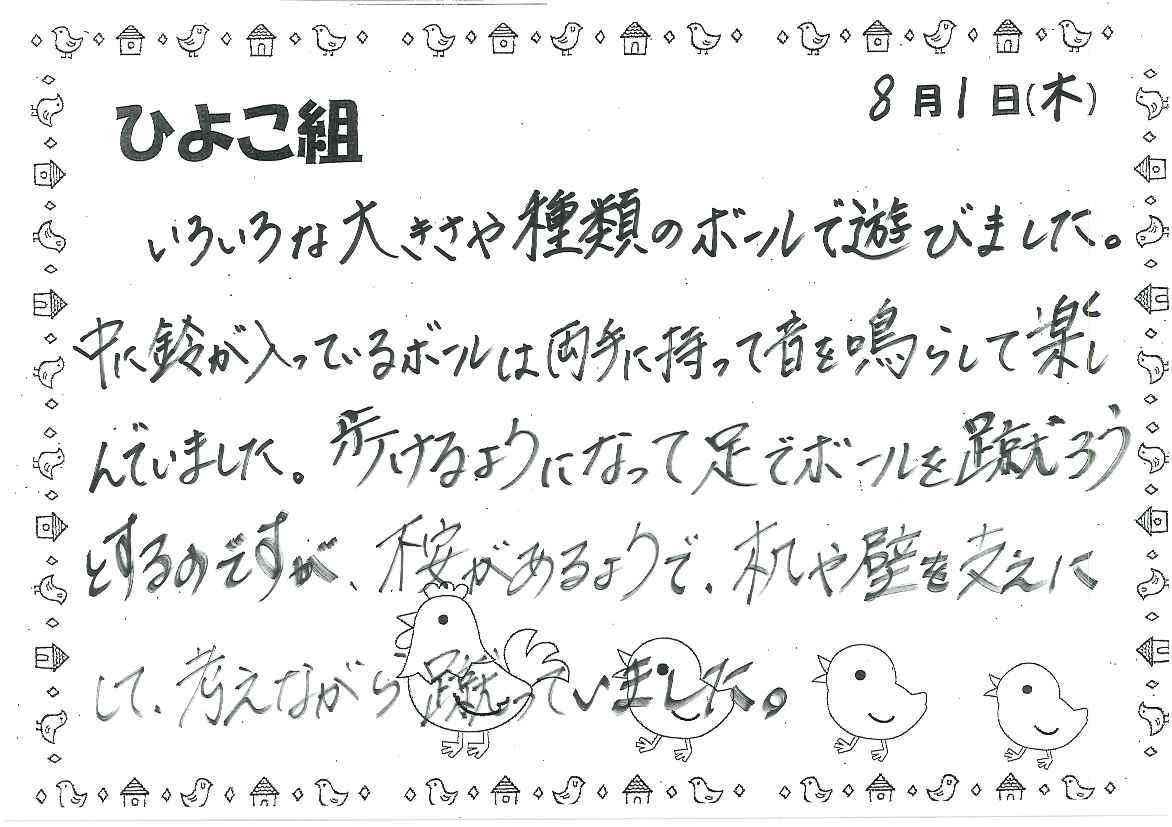 8月1日(木)
ひよこ組
いろいろな大きさや種類のボールで遊びました。
中に鈴が入っているボールは両手に持って音を鳴らして楽し
んでいました。歩けるようになって足でボールを蹴ろう
とするのですが、不安があるようで、机や壁を支えに
して、考えながら蹴っていました。